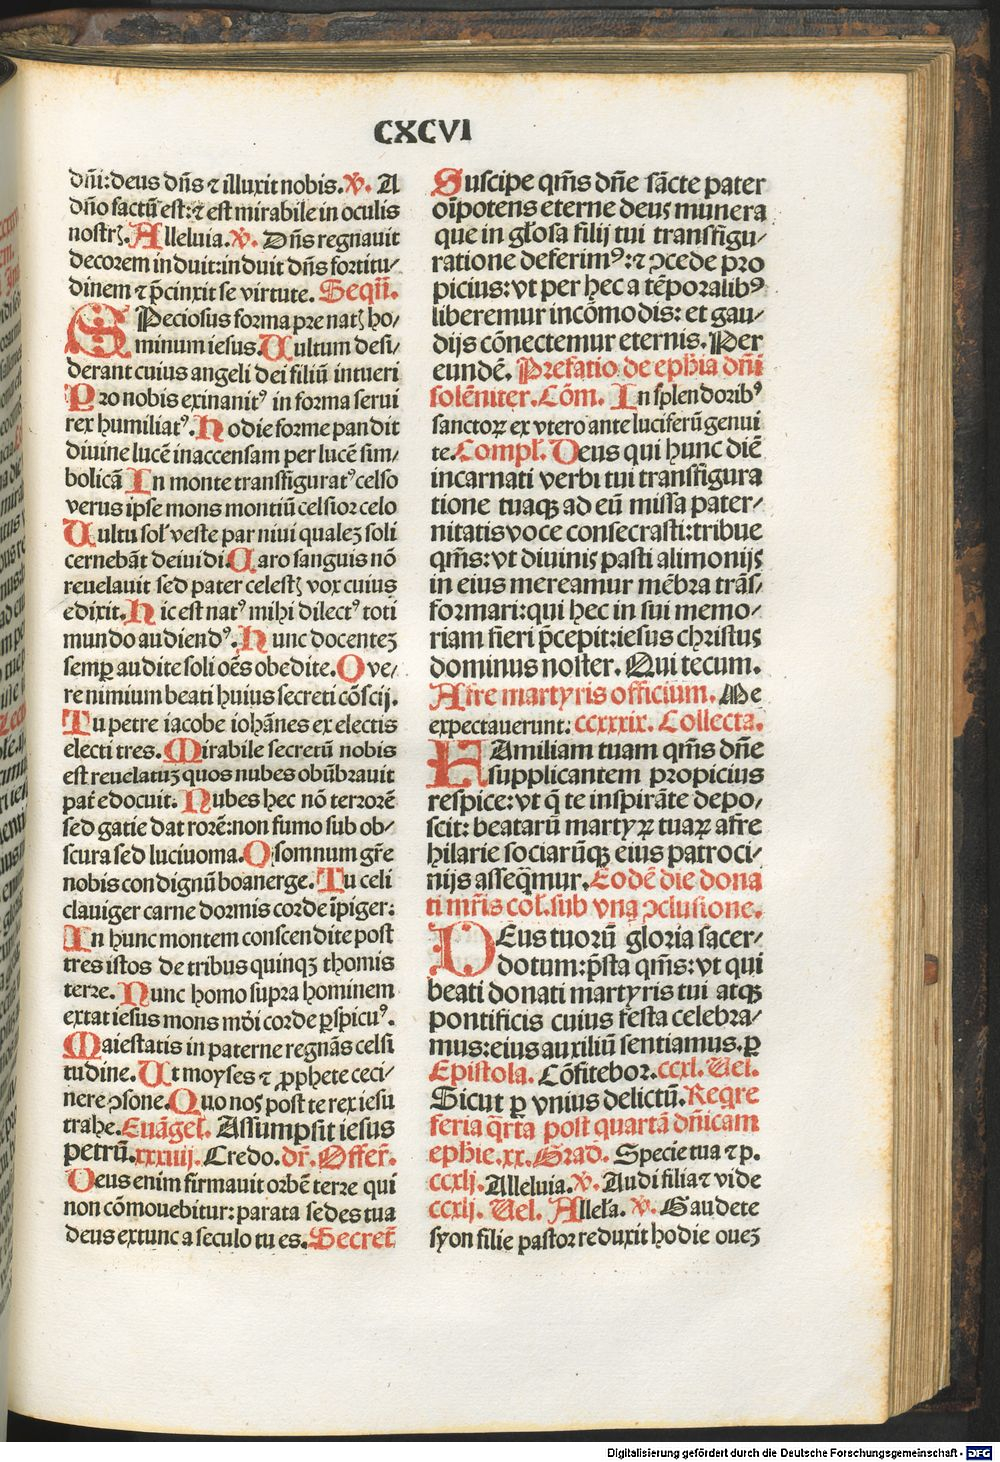 CXCVI
dñi:deus dñs ⁊ illuxit nobis. ℣. A
dño factū est:⁊ est mirabile in oculis
nostrꝭ. Alleluia. ℣. Dñs regnauit
decorem induit:induit dñs fortitu-
dinem ⁊ p̄cinxit se virtute. Seqūn.
SPeciosus forma pre natꝭ ho-
minum iesus. Uultum desi-
derant cuius angeli dei filiū intueri
Pro nobis exinanitꝰ in forma serui
rex humiliatꝰ. Hodie forme pandit
diuine lucē inaccensam per lucē sim-
bolicā In monte transfiguratꝰ celso
verus ipse mons montiū celsior celo
Uultu sol̕ veste par niui qualeꝫ soli
cernebāt deiuidi. Caro sanguis nō
reuelauit sed pater celestꝭ vox cuius
edixit. Hic est natꝰ mihi dilectꝰ toti
mundo audiendꝰ. Hunc docenteꝫ
semꝑ audite soli oēs obedite. O ve-
re nimium beati huius secreti cōscij.
Tu petre iacobe iohānes ex electis
electi tres. Mirabile secretū nobis
est reuelatuꝫ quos nubes obūbrauit
pat̄ edocuit. Nubes hec nō terrorē
sed gatie dat rorē:non fumo sub ob-
scura sed luciuoma. O somnum gr̄e
nobis condignū boanerge. Tu celi
clauiger carne dormis corde īpiger:
In hunc montem conscendite post
tres istos de tribus quinqꝫ thomis
terre. Nunc homo supra hominem
extat iesus mons mūdi corde ꝑspicuꝰ.
Maiestatis in paterne regnās celsi
tudine. Ut moyses ⁊ ꝓphete ceci-
nere ꝯsone. Quo nos post te rex iesu
trahe. Euāgel̕. Assumpsit iesus
petrū. xxxiiij. Credo. dr̄. Offer̄.
Deus enim firmauit orbē terre qui
non cōmouebitur: parata sedes tua
deus extunc a seculo tu es. Secret̄
Suscipe qm̄s dñe sācte pater
oīpotens eterne deus munera
que in gl̕osa filij tui transfigu-
ratione deferimꝰ:⁊ ꝯcede pro
picius: vt per hec a tēporalibꝰ
liberemur incōmodis: et gau-
dijs cōnectemur eternis. Per
eundē. Prefatio de ephia dñi
solēniter. Cōm. In splendoribꝰ
sanctoꝝ ex vtero ante luciferū genui
te. Compl̕. Deus qui hunc diē
incarnati verbi tui transfigura
tione tuaqꝫ ad eū missa pater-
nitatis voce consecrasti: tribue
qm̄s: vt diuinis pasti alimonijs
in eius mereamur mēbra trās-
formari: qui hec in sui memo-
riam fieri p̄cepit: iesus christus
dominus noster. Qui tecum.
Afre martyris officium. Me
expectauerunt: ccxxxix. Collecta.
FAmiliam tuam qm̄s dñe
supplicantem propicius
respice: vt q̄ te inspirāte depo-
scit: beatarū martyꝝ tuaꝝ afre
hilarie sociarūqꝫ eius patroci-
nijs asseq̄mur. Eodē die dona
ti mr̄is col̕. sub vna ꝯclusione.
DEus tuorū gloria sacer-
dotum: p̄sta qm̄s: vt qui
beati donati martyris tui atqꝫ
pontificis cuius festa celebra-
mus: eius auxiliū sentiamus. ꝑ
Epistola. Cōfitebor. ccxl. Uel.
Sicut ꝑ vnius delictū. Req̄re
feria q̄rta post quartā dñicam
ephie. xx. Grad. Specie tua ⁊ p.
ccxlj. Alleluia. ℣. Audi filia ⁊ vide
ccxlij. Uel. Allel̕a. ℣. Gaudete
syon filie pastor reduxit hodie oueꝫ
Digitalisierung gefördert durch die Deutsche Forschungsgemeinschaft - DFG